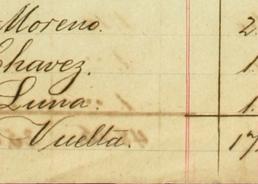 Moreno. 2
Chavez. 1.
Luna. 1.
Vuelta. 17